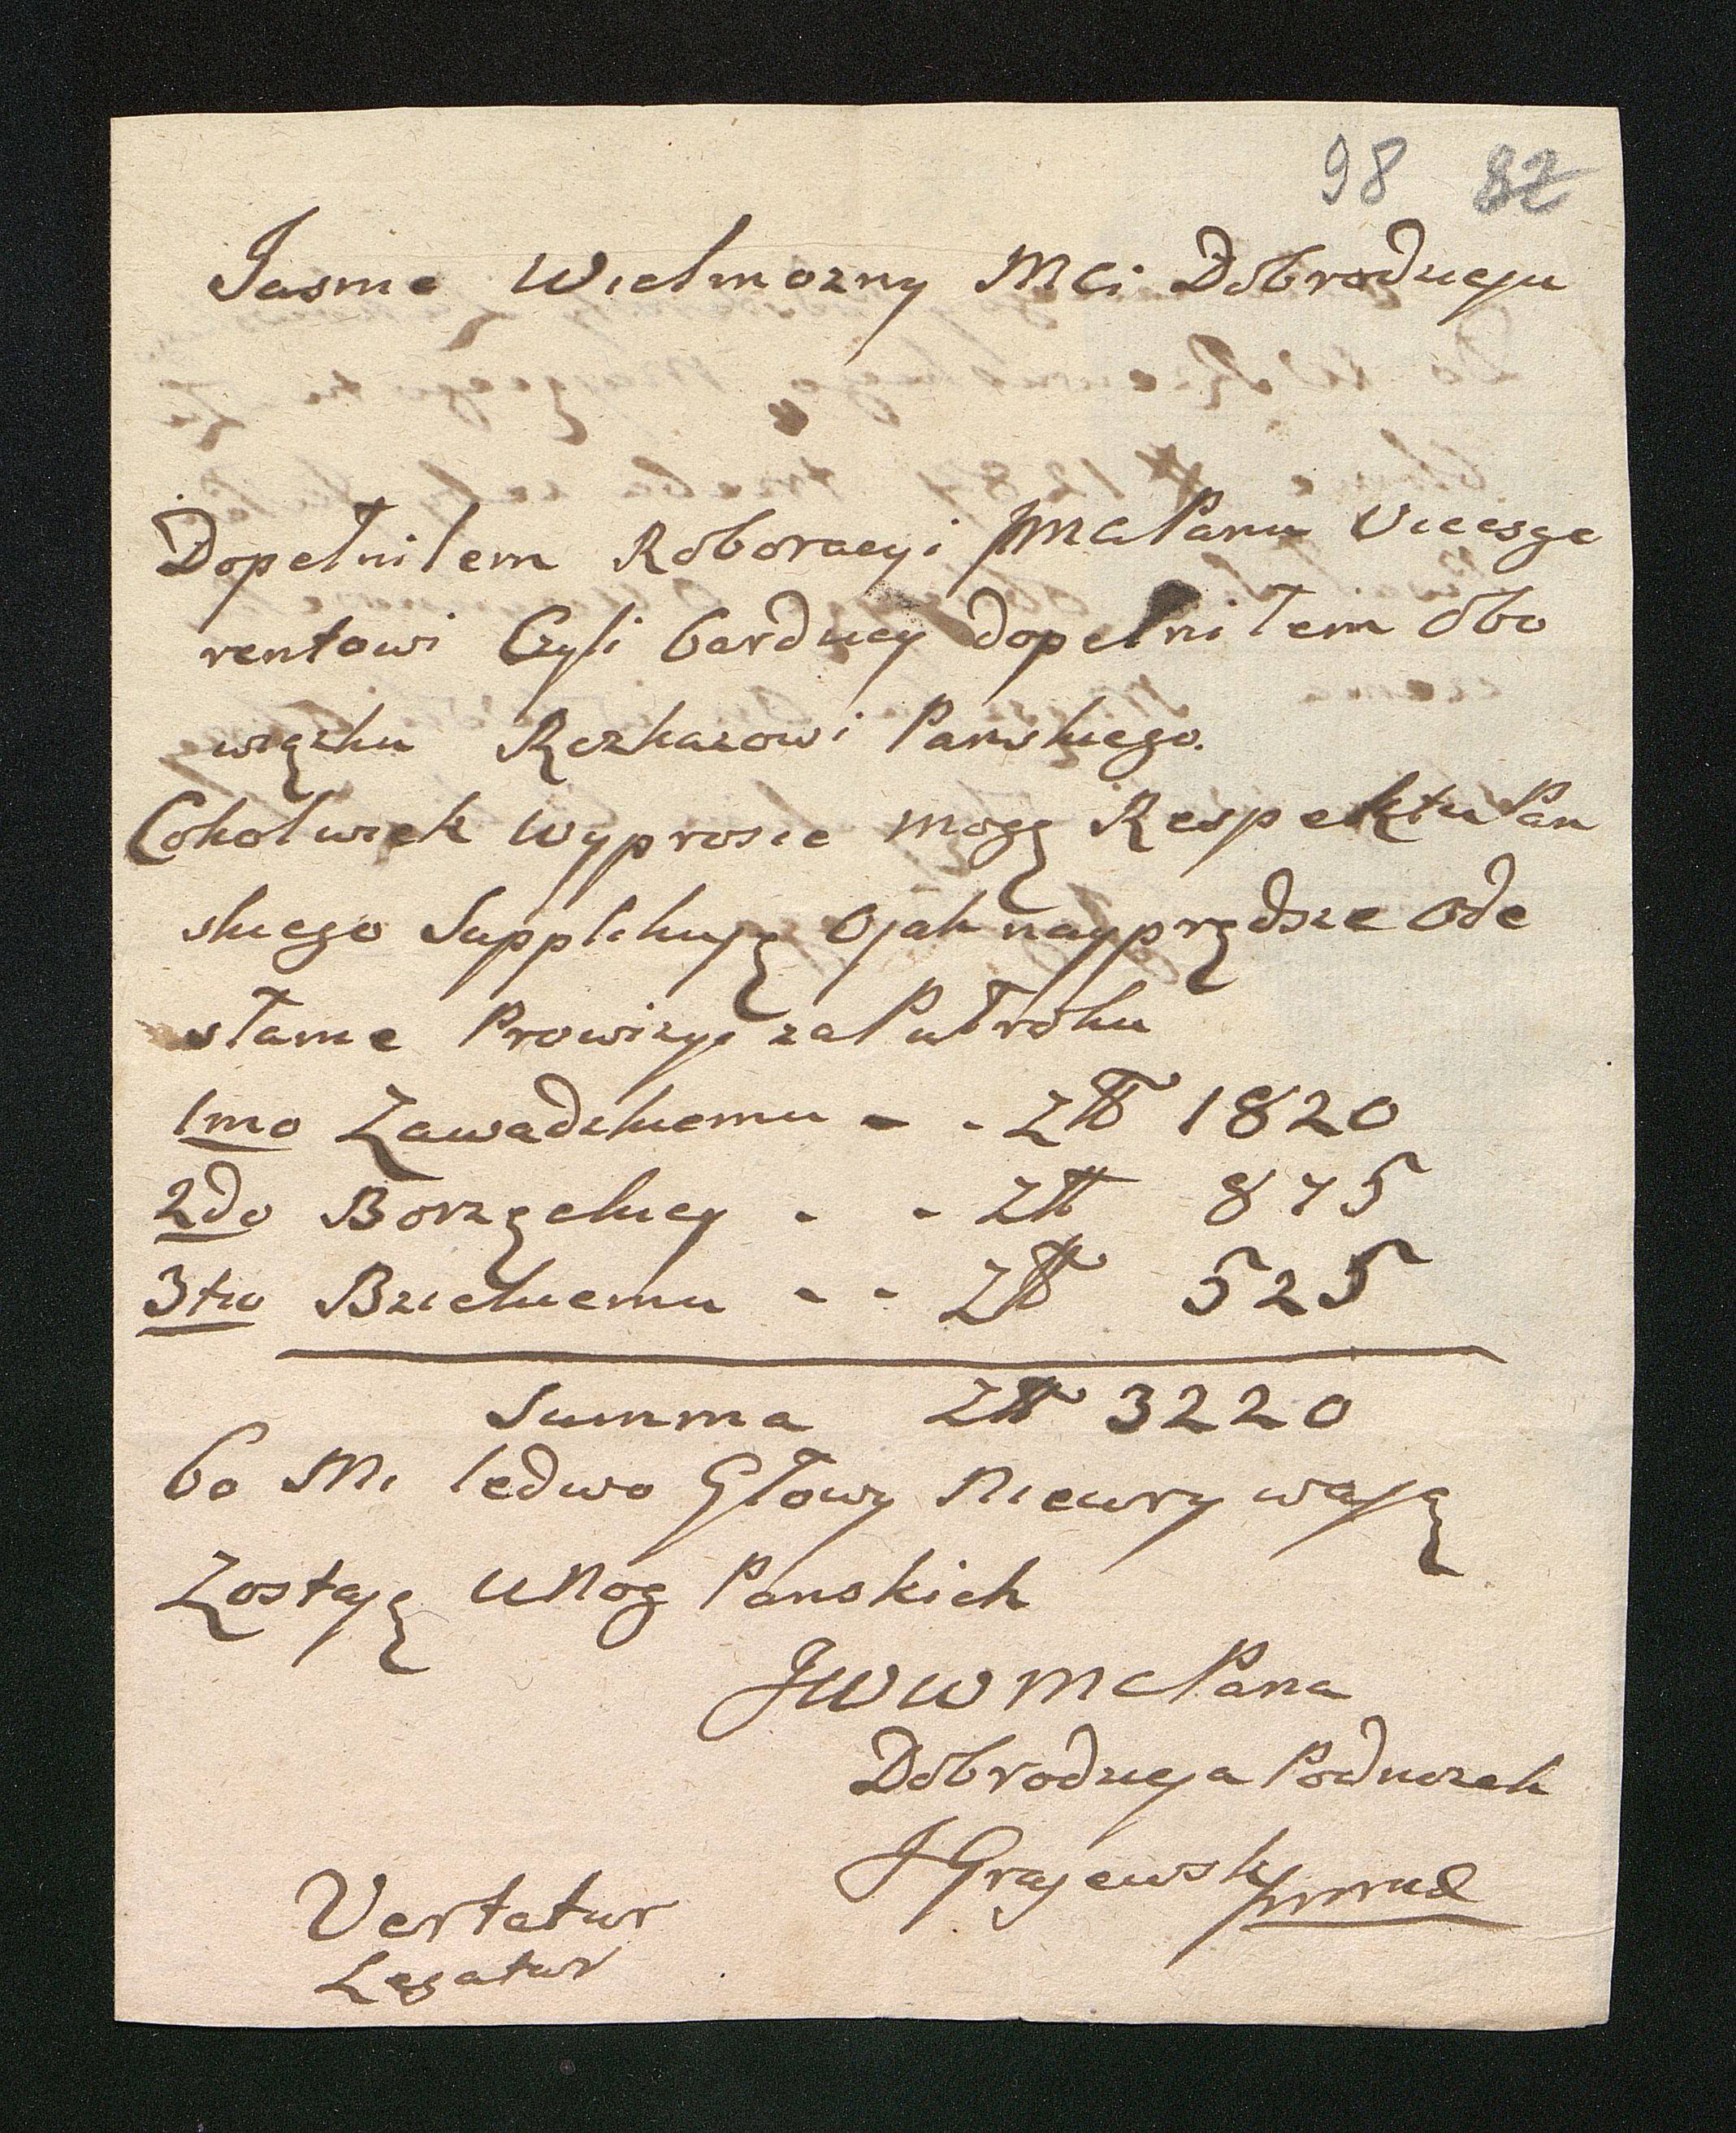 98 82
Jasnie Wielmozny Mci Dobrodzieju
Dopełniłem Roboracyi JMCiPanu Vicesge
rentowi Czyli bardziey dopełniłem Obo
wiązku Rozkazowi Panskiego.
Cokolwiek Wyprosic mogę Respektu Pan
skiego Supplikuję Ojak nayprędsze Ode
słanie Prowizyi za Pułroku
1mo Zawadzkiemu - - Złł 1820
2do Borzęckiey - - Złł 875
3tio Bzickiemu - - Złł 525
Summa Złł 3220
bo Mi ledwo Głowy Nieurywają
Zostaję U Nog Panskich
JWWMCPana
Dobrodzieja Podnozek
J Grajewski mppria
Vertatur
Legatur